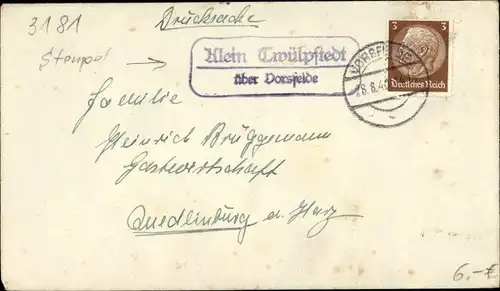 3181
Drucksache
Stempel
Klein Twülpstedt
über Vorsfelde
3 3
Deutsches Reich
VORSFELDE
28.8.4
Familie
Heinrich Brüggemann
Gastwirtschaft
Quedlinburg a. Harz
6.-€